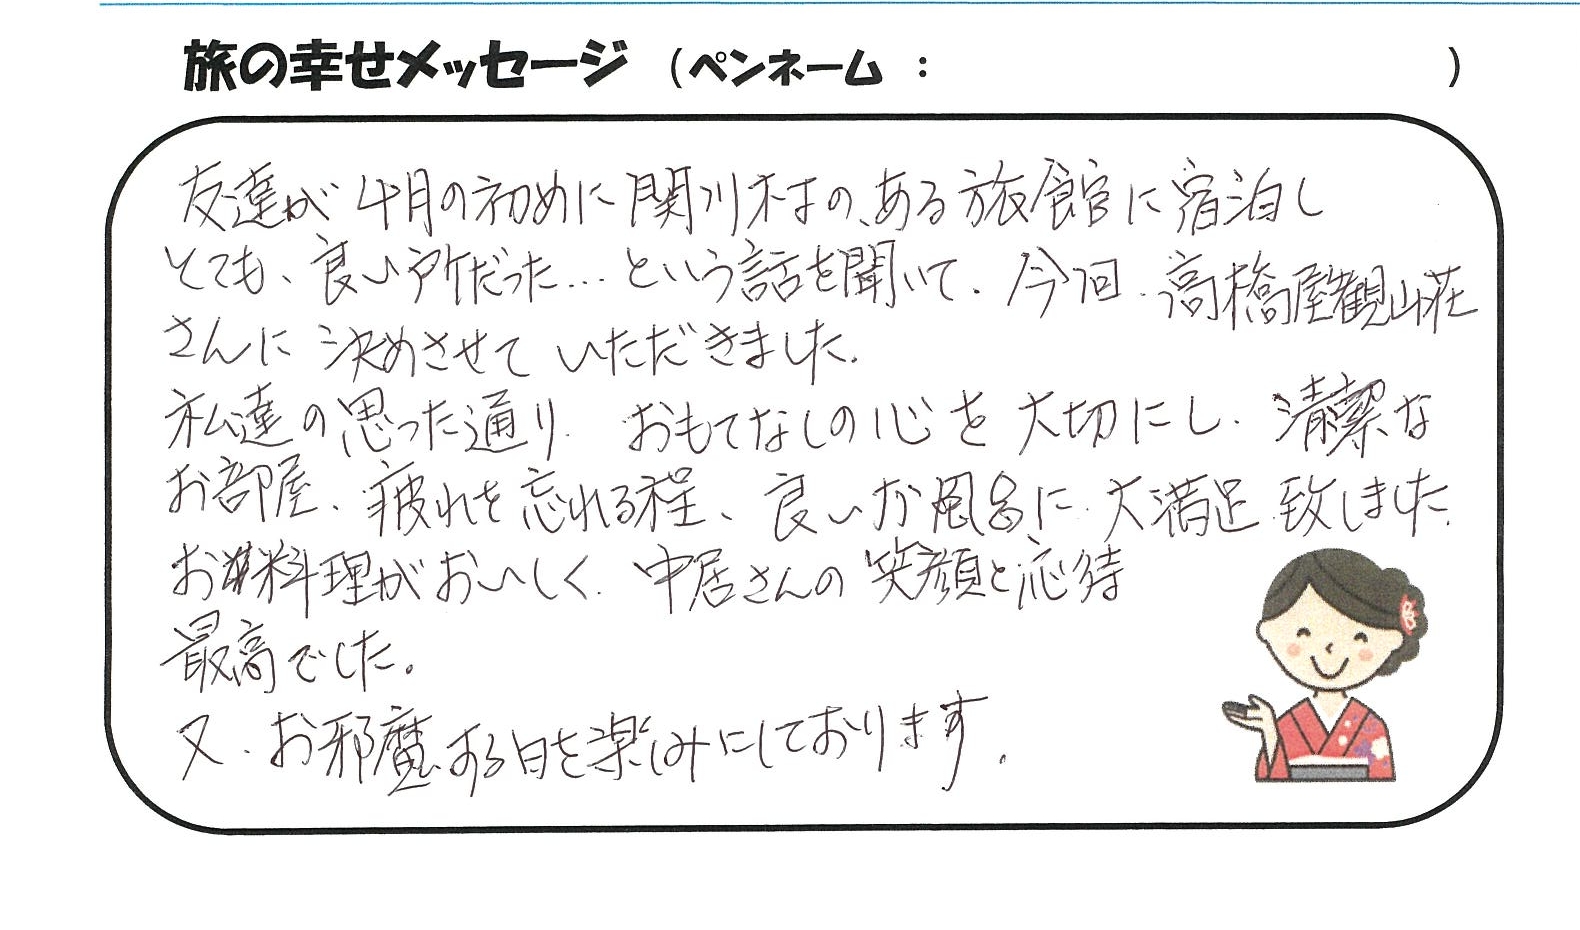 旅の幸せメッセージ （ペンネーム ： ）
友達が 4月の初めに 関川村の、ある旅館に宿泊し
とても、良い所だった…という話を聞いて、今回、高橋屋観山荘
さんに 決めさせて いただきました。
私達の思った通り、おもてなしの心を大切にし、清潔な
お部屋、疲れを忘れる程、良いお風呂に、大満足致しました。
お料理がおいしく、中居さんの笑顔と応待
最高でした。
又、お邪魔する日を楽しみにしております。